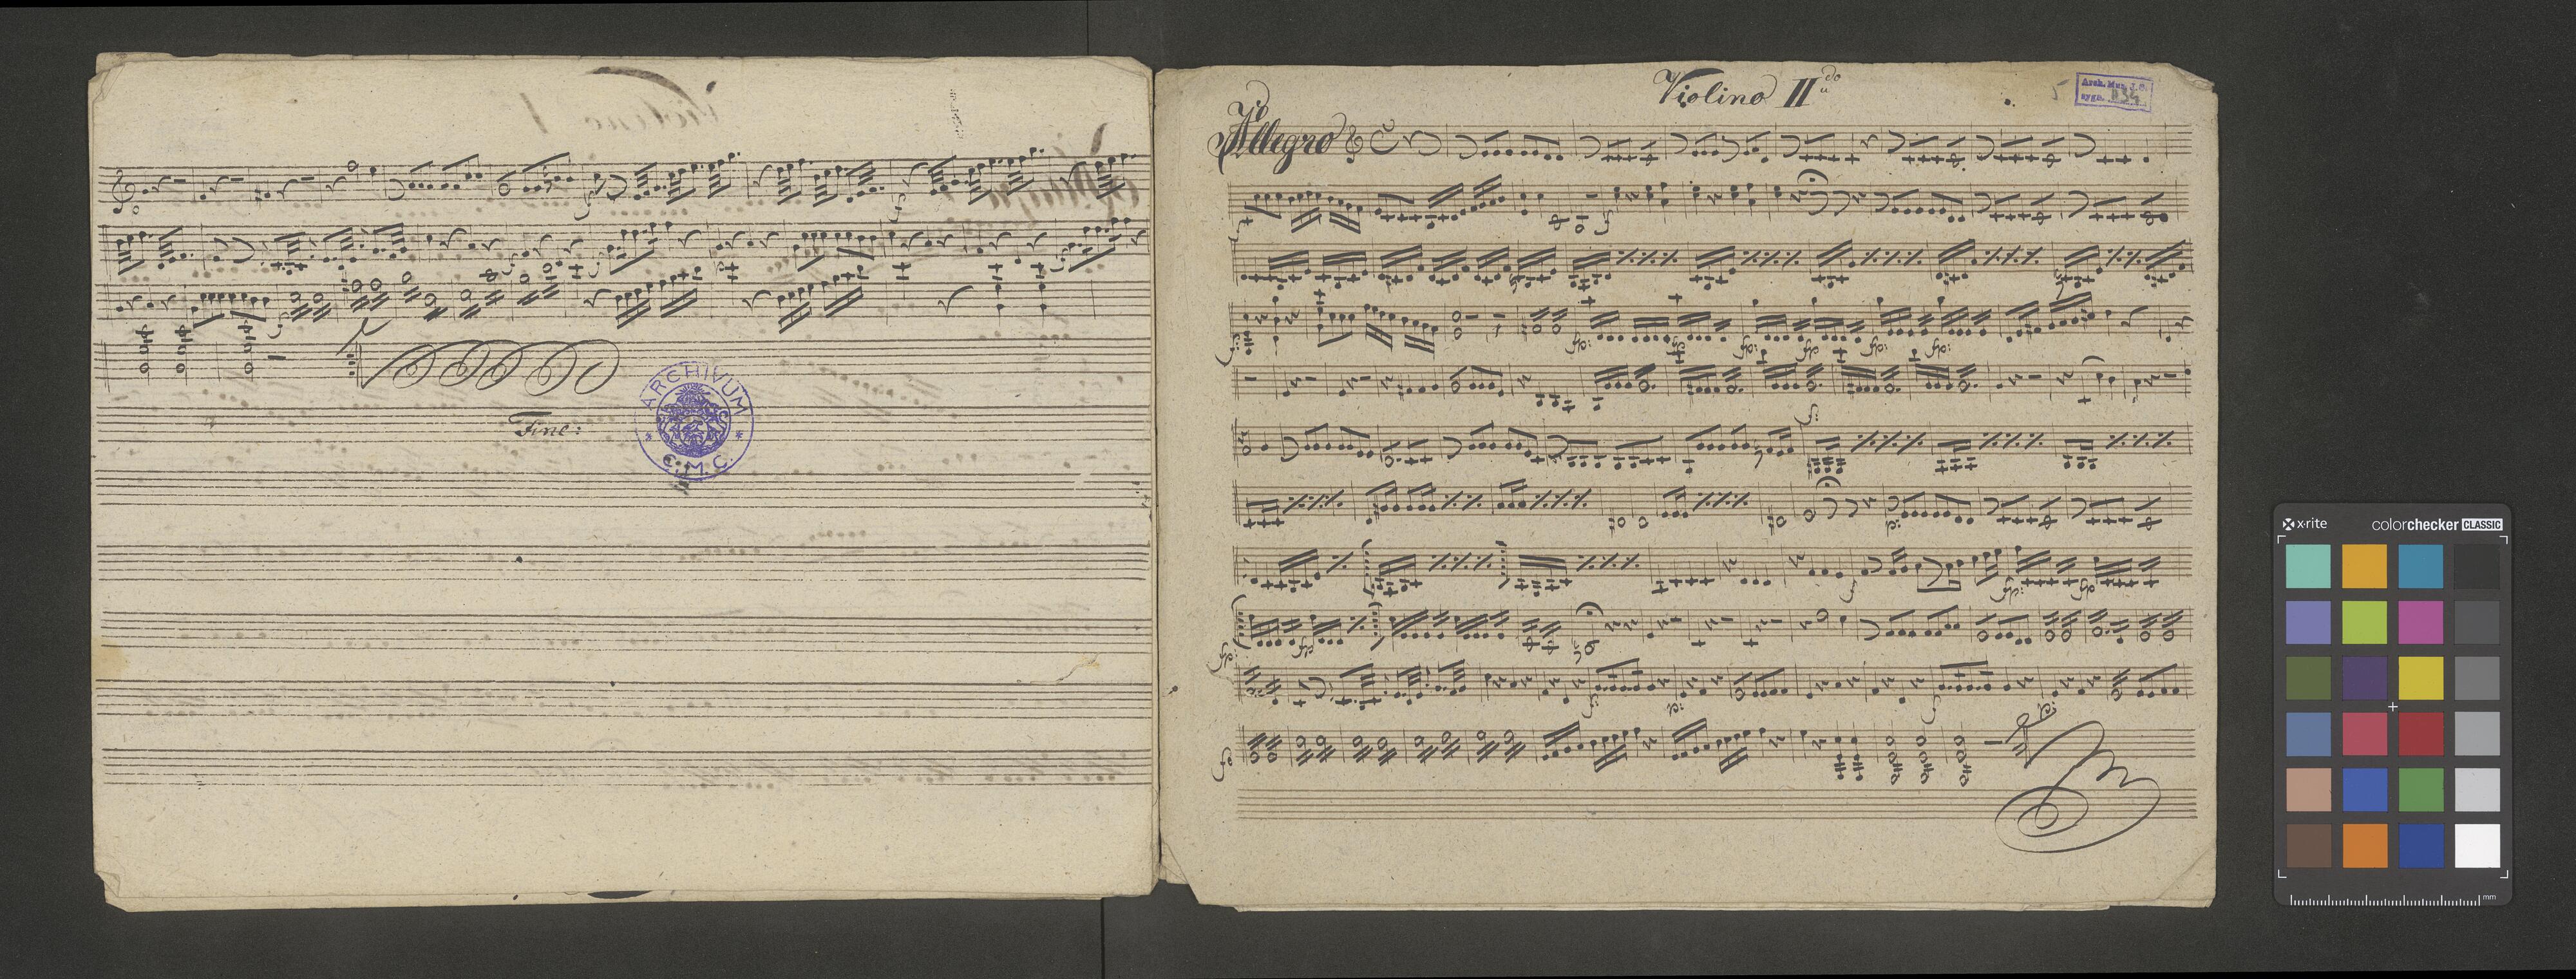 Fine:
ARCHIVUM
* C.M.C. *
Violino II do
Allegro
f
p:
fp:
fp
fp:
fp
fp:
fp:
f:
p:
f
fp:
fp
fp:
fp
f:
p:
f
p:
x-rite
colorchecker CLASSIC
mm